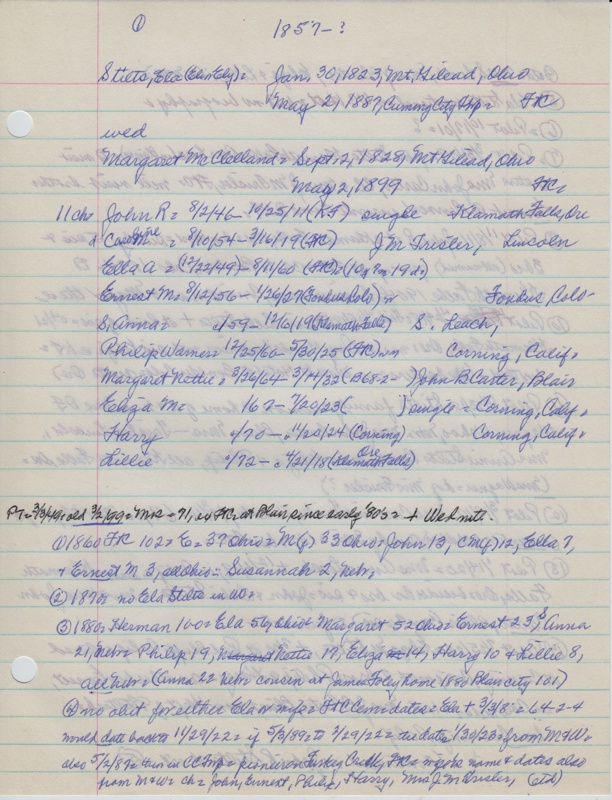 ① 1857-?
Stiets, Ela (Elim Ely) = Jan, 30, 1823, Mt, Gilead, Ohio
May 2, 1887, Cuming City Twp = FtC
wed
Margaret McClelland = Sept, 2, 1828, Mt Gilead, Ohio
May 2, 1899 FtC
11 chs John R = 8/2/46 - 10/25/11 (KF) single Klamath Falls, Ore
& Caroline = 8/10/54 - 3/16/19 (FtC) J M Frisler, Lincoln
Ella A = (12/22/49) - 8/11/60 (FtC) = (10y 7m 19d)
Ernest M = 8/12/56 - 1/26/27 ( Colo) Colo-
S, Anna = c/59 - 12/6/19 (Klamath Falls) S. Leach,
Philip Warner = 12/25/60 - 5/30/25 (FtC) Corning, Calif.
Margaret Nettie = 3/26/64 - 3/14/32 (B68-2- ) John B Carter, Blair
Eliza M = 167 - 7/20/23 ( ) single = Corning, Calif.
Harry c/70 - c 11/20/24 (Corning) Corning, Calif.
Lillie c/72 - c 4/21/18 (Klamath Falls) Ore
PT = 3/3/99 = old 3/2/99 = Mrs = 71, ex FtC at Blair since early '80's = + Wed nite.
① 1860 FtC 102 = E = 37 Ohio = M(g) 33 Ohio = John 13, C M(g) 12, Ella 7,
+ Ernest M 3, all Ohio = Susannah 2, Nebr.
② 1870 = no Ela Stiets in WO =
③ 1880 = Herman 100 = Ela 56 Ohio = Margaret 52 Ohio = Ernest 23, S Anna
21, Nebr = Philip 19, Nettie 17, Eliza 14, Harry 10 & Lillie 8,
all Nebr = (Anna 22 Nebr cousin at James Foley home 1880 Blair city 181)
④ no obit for either Ela or wife = FtC Cem dates = Ela + 3/3/8 = 64-2-4
would date back to 11/29/22 = if 5/3/89 to 3/29/22 = the date 1/30/23 = from M & W =
also 5/2/87 = then in CC Twp = pioneer on Turkey Creek, FtC = maybe name & dates also
from M & W = ch = John, Ernest, Philip, Harry, Mrs J M Frisler, (etc)